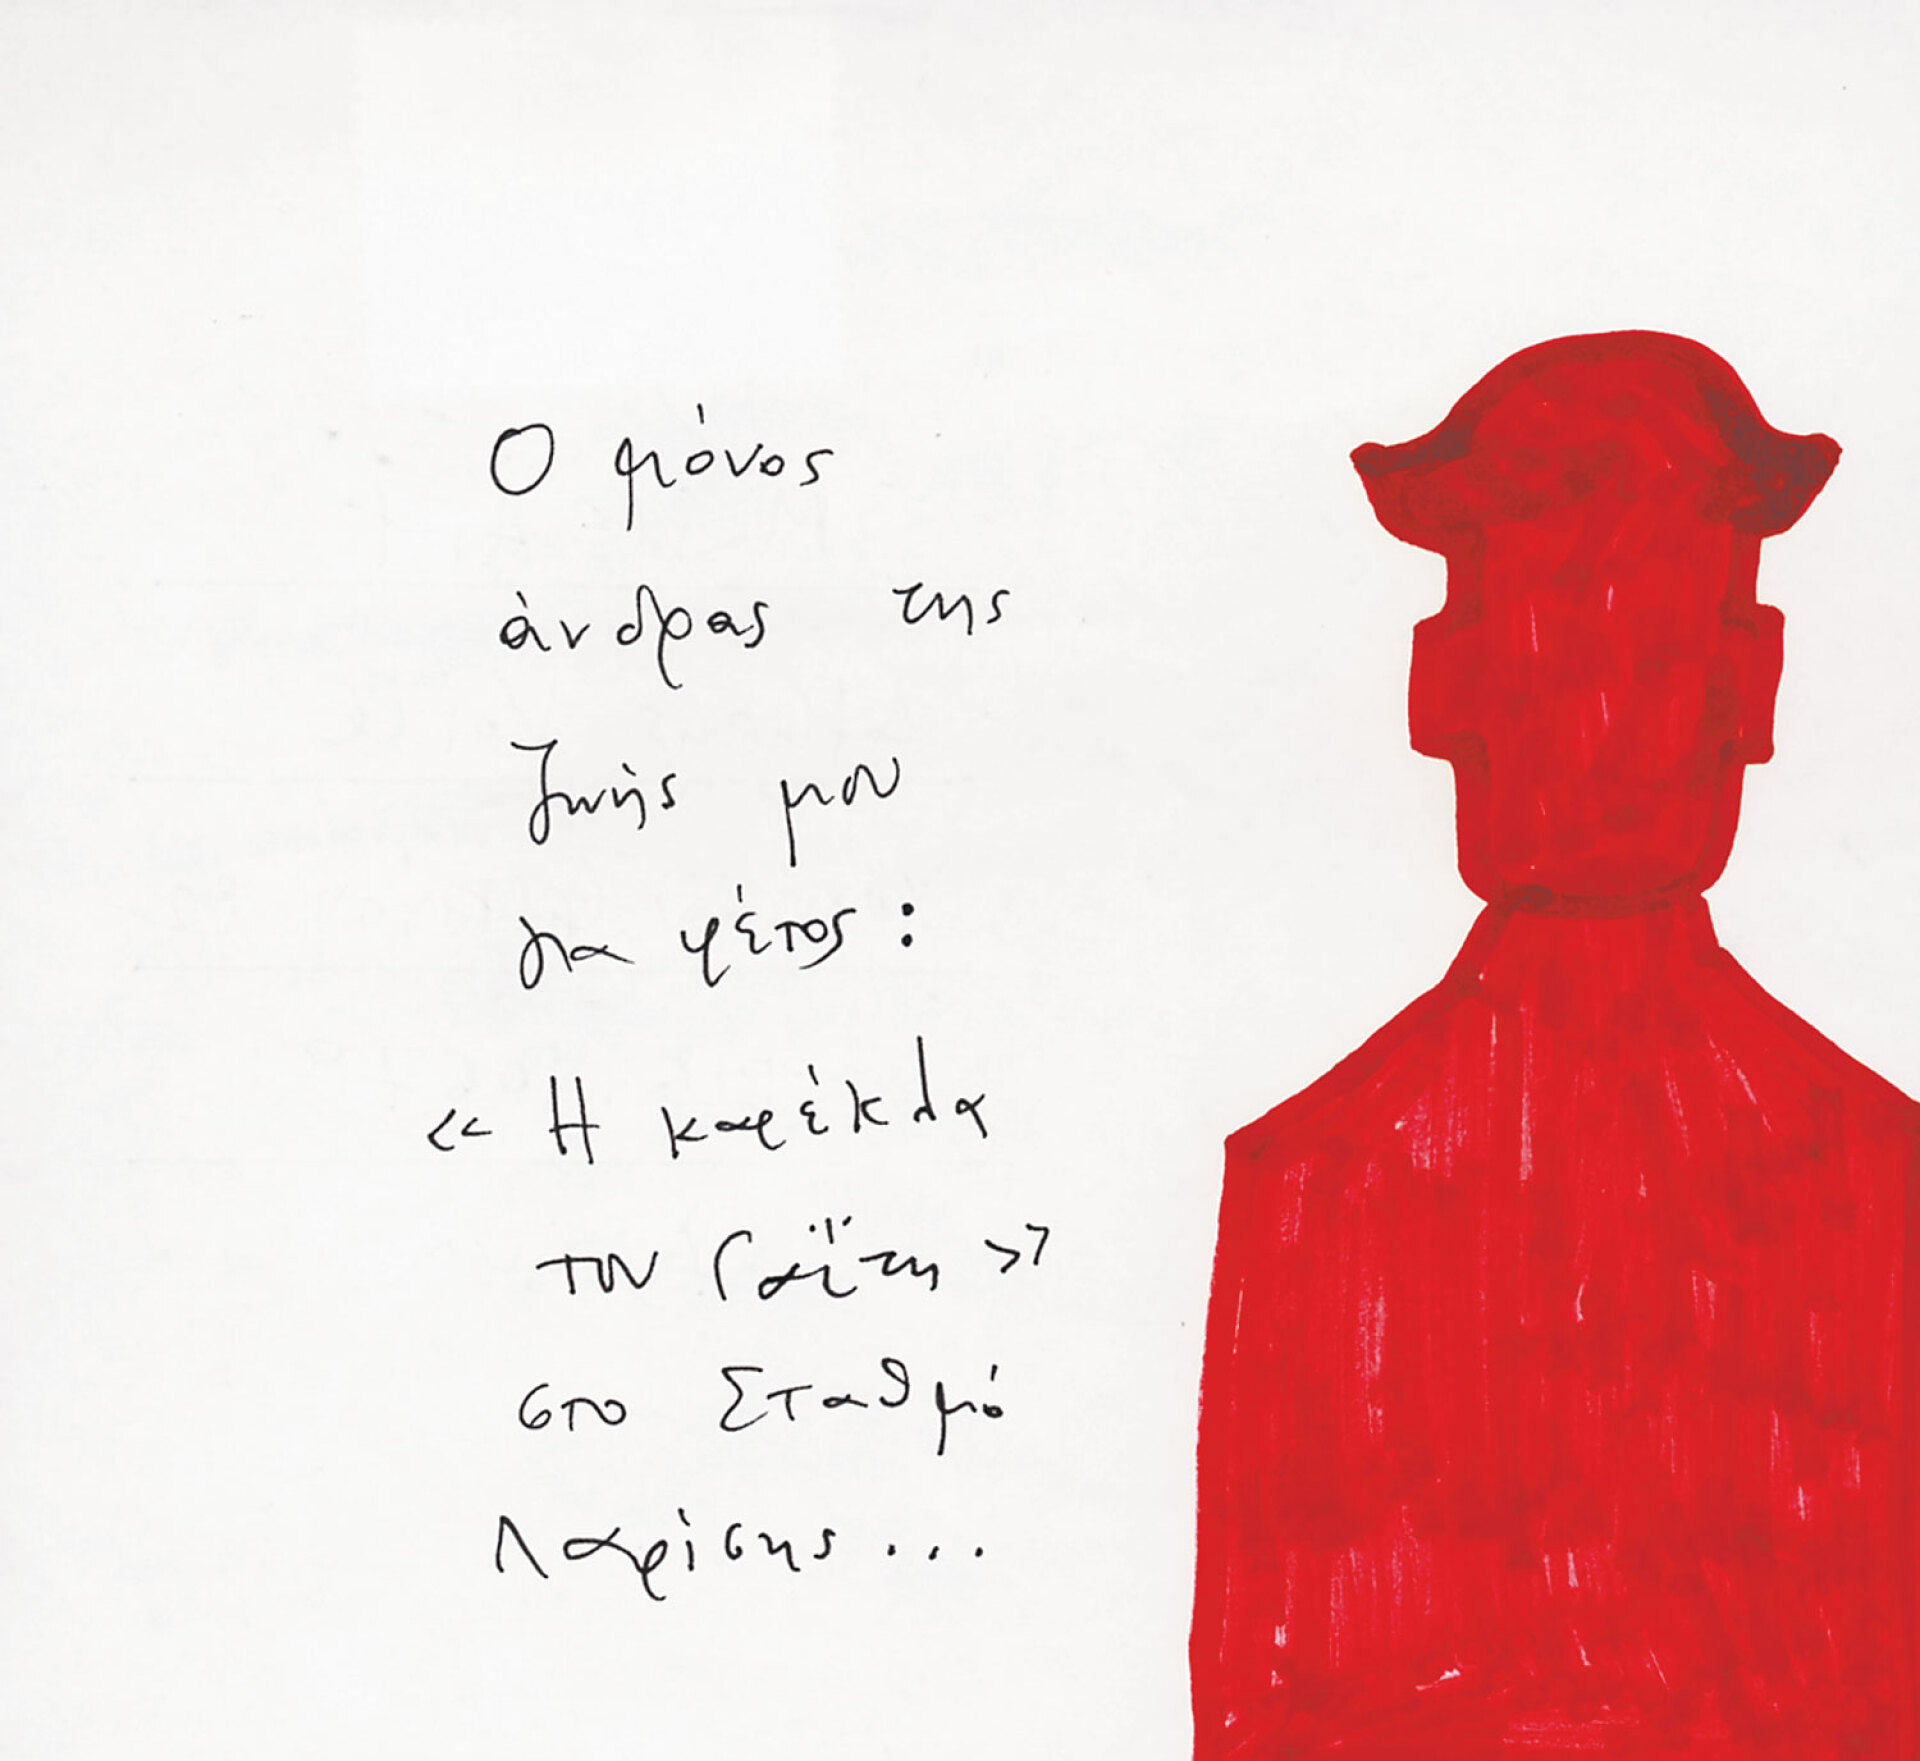 Ο μόνος
άνδρας της
ζωής μου
για φέτος:
«Η καρέκλα
του Γαΐτη»
στο Σταθμό
Λαρίσης...